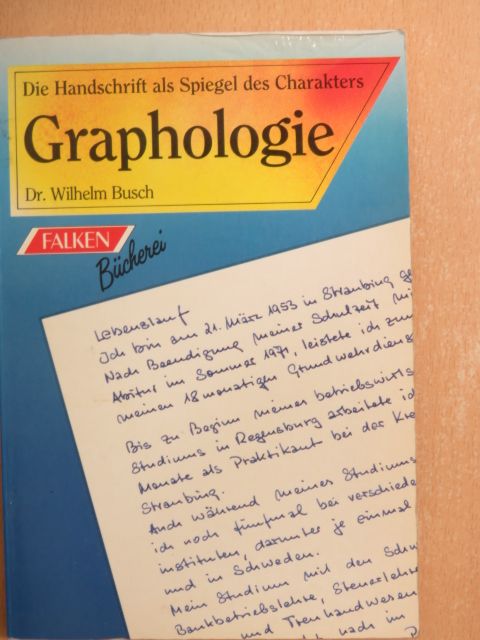 Die Handschrift als Spiegel des Charakters
Graphologie
Dr. Wilhelm Busch
FALKEN
Bücherei
Lebenslauf
Ich bin am 21. März 1953 in Straubing ge
Nach Beendigung meiner Schulzeit mi
Abitur im Sommer 1971, leistete ich zun
meinen 18 monatigen Grundwehrdiens
Bis zu Beginn meines betriebswirts
Studiums in Regensburg arbeitete ic
Monate als Praktikant bei der Kre
Straubing.
Auch während meines Studiums
ich noch fünfmal bei verschiede
instituten, darunter je einmal
und in Schweden.
Mein Studium mit den Schw
Bankbetriebslehre, Steuerlehre
und Treuhandwesen
nach im